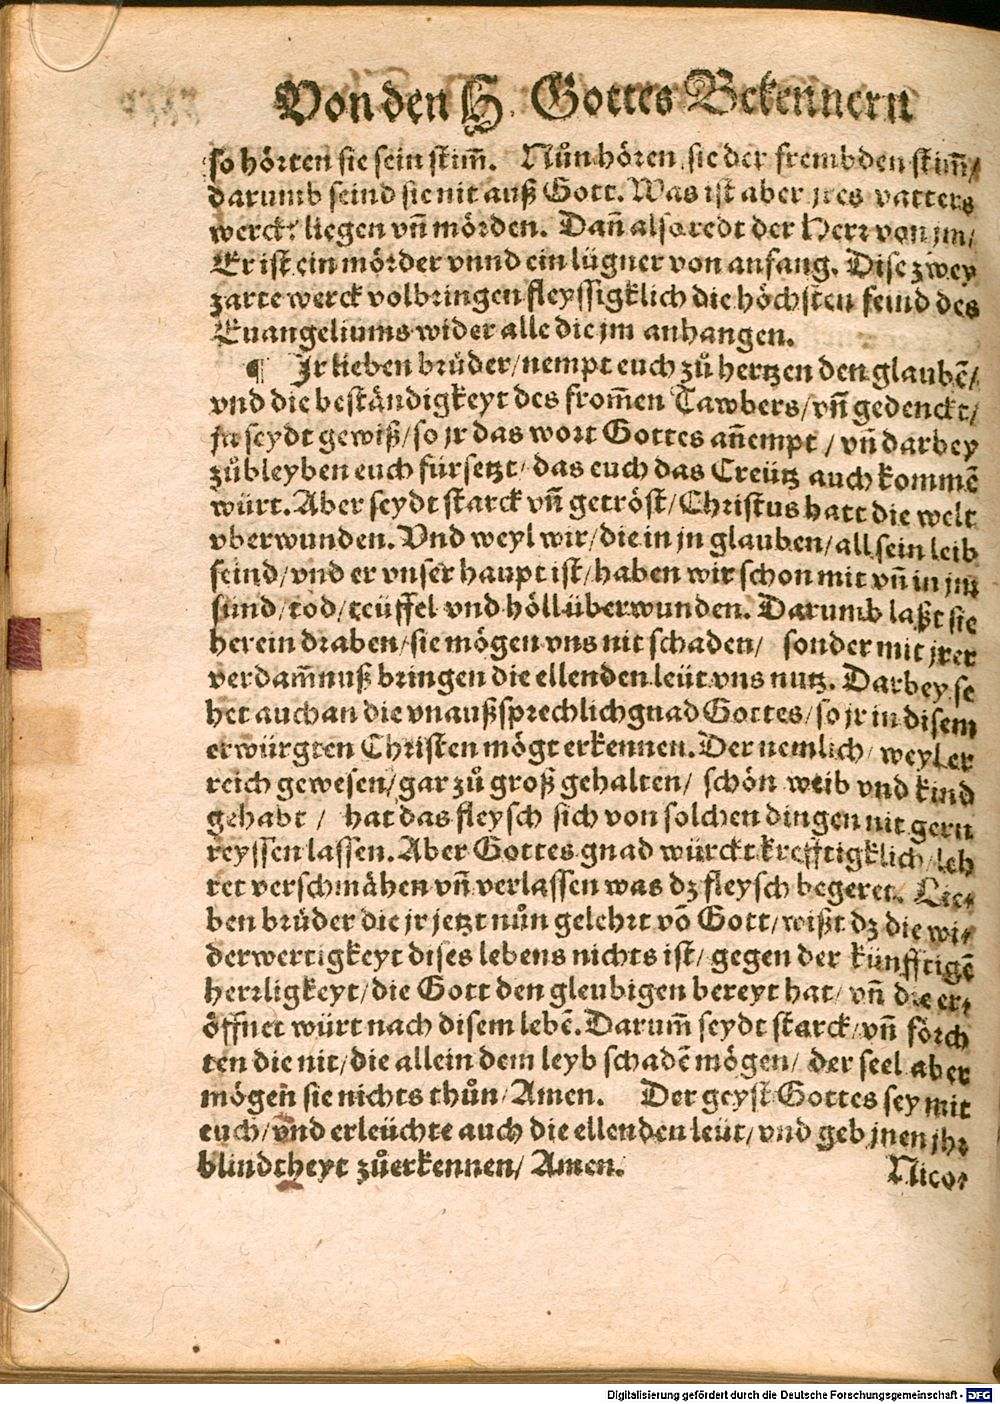 Von den H. Gottes Bekennern
so hörten sie sein stim̃. Nůn hören sie der frembden stim̃/
darumb seind sie nit auß Gott. Was ist aber jres vatters
werck? liegen vñ mörden. Dañ also redt der Herr von jm/
Er ist ein mörder vnnd ein lügner von anfang. Dise zwey
zarte werck volbringen fleyssigklich die höchsten feind des
Euangeliums wider alle die jm anhangen.
¶ Ir lieben brůder/nempt euch zů hertzen den glaubẽ/
vnd die beständigkeyt des from̃en Tawbers/vñ gedenckt/
ja seydt gewiß/so jr das wort Gottes añempt/vñ darbey
zůbleyben euch fürsetzt/das euch das Creütz auch kommẽ
würt. Aber seydt starck vñ getröst/Christus hatt die welt
vberwunden. Vnd weyl wir/die in jn glauben/all sein leib
seind/vnd er vnser haupt ist/haben wir schon mit vñ in jm
sünd/tod/teüffel vnd höll überwunden. Darumb laßt sie
herein draben/sie mögen vns nit schaden/ sonder mit jrer
verdam̃nuß bringen die ellenden leüt vns nutz. Darbey se
het auch an die vnaußsprechlich gnad Gottes/so jr in disem
erwürgten Christen mögt erkennen. Der nemlich/weyl er
reich gewesen/gar zů groß gehalten/ schön weib vnd kind
gehabt/ hat das fleysch sich von solchen dingen nit gern
reyssen lassen. Aber Gottes gnad würckt krefftigklich/leh
ret verschmähen vñ verlassen was dz fleysch begeret. Lie⸗
ben brůder die jr jetzt nůn gelehrt võ Gott/wißt dz die wi⸗
derwertigkeyt dises lebens nichts ist/gegen der künfftigẽ
herrligkeyt/die Gott den gleubigen bereyt hat/vñ die er⸗
öffnet würt nach disem lebẽ. Darum̃ seydt starck/vñ förch
ten die nit/die allein dem leyb schadẽ mögen/ der seel aber
mögen sie nichts thůn/Amen. Der geyst Gottes sey mit
euch/vnd erleüchte auch die ellenden leüt/vnd geb jnen jhr
blindtheyt zůerkennen/Amen.
Nico⸗
Digitalisierung gefördert durch die Deutsche Forschungsgemeinschaft - DFG